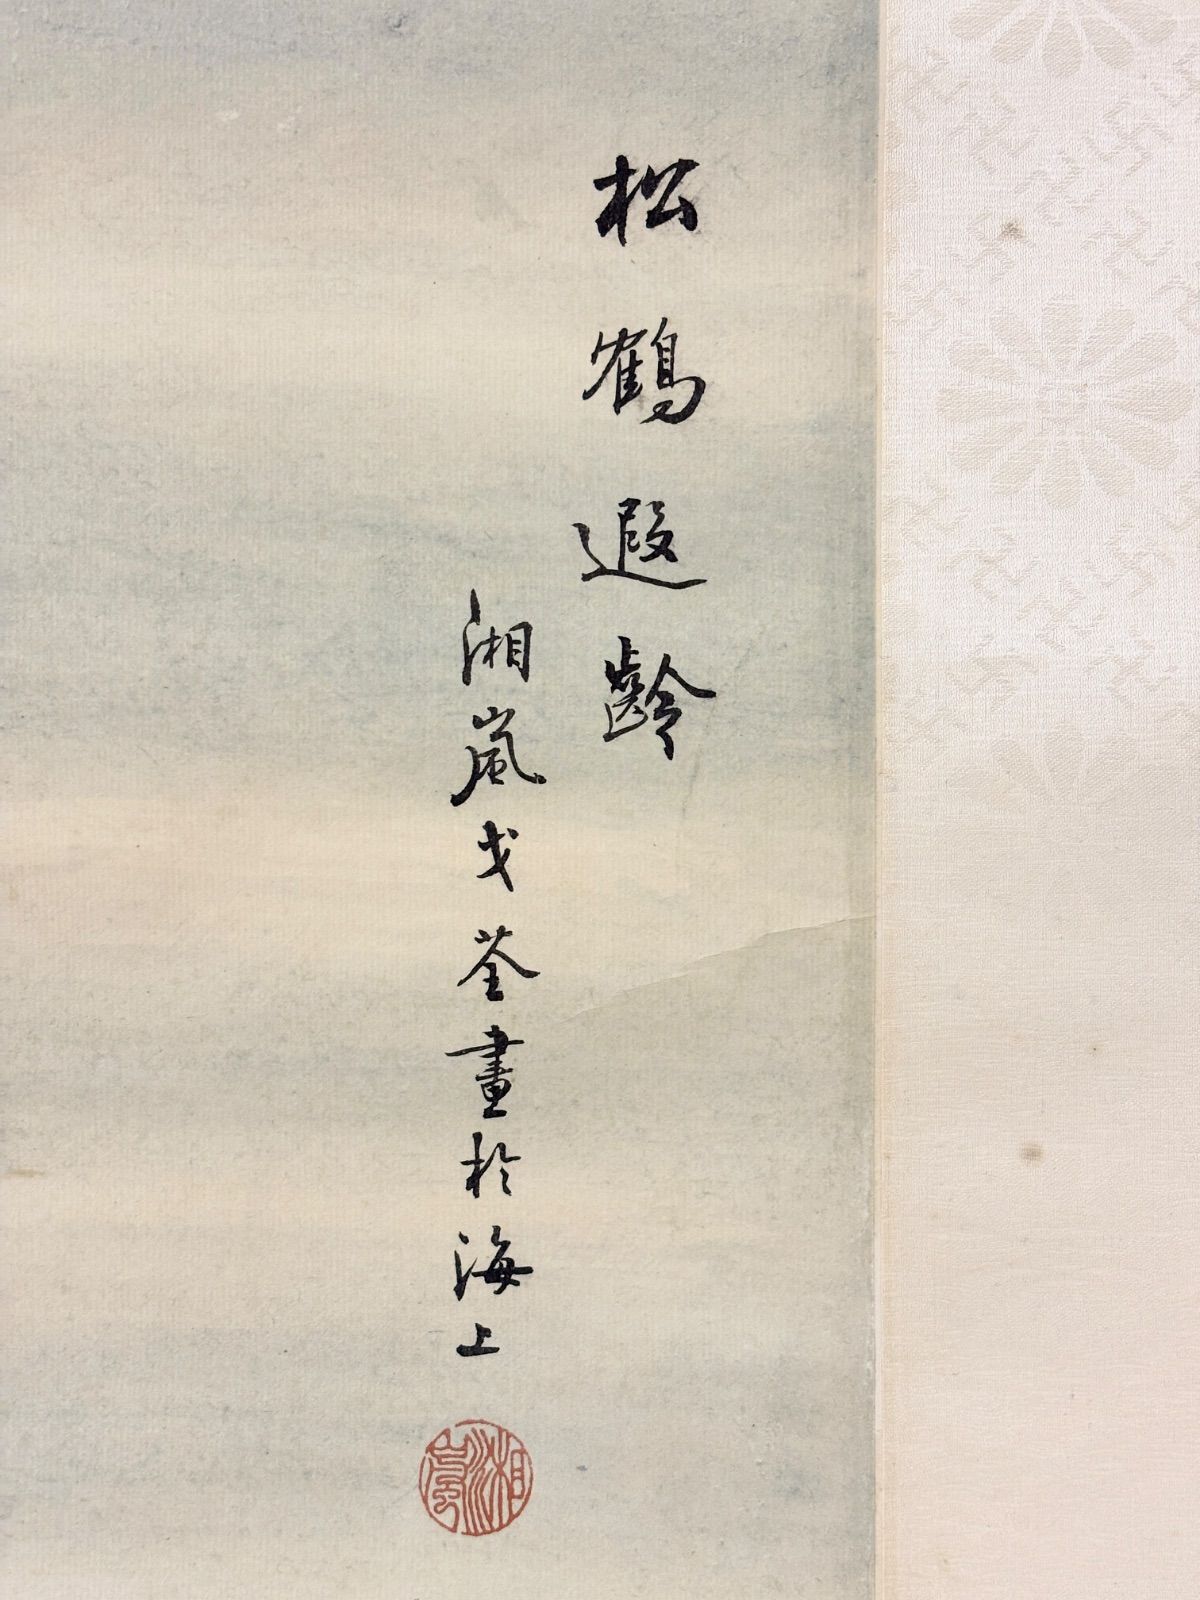 松鶴遐齡
湘嵐戈荃畫於海上
湘嵐